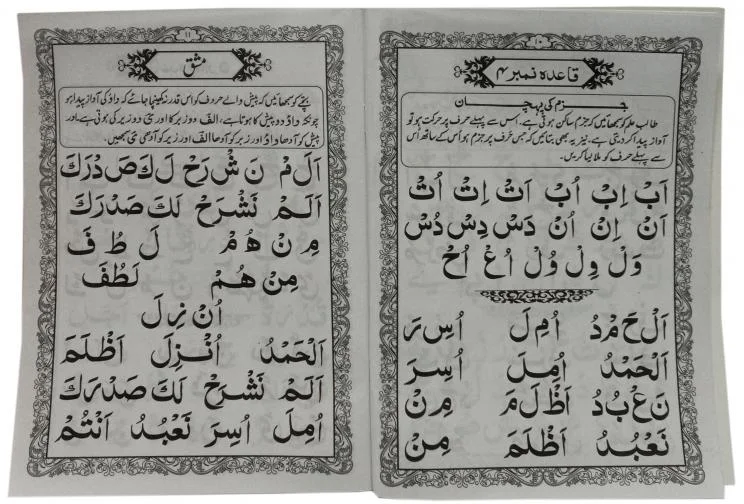 ۱۰
قاعدہ نمبر ۴
جزم کی پہچان
طالب علم کو سمجھائیں کہ جزم ساکن ہوتی ہے۔ اس سے پہلے حرف پر حرکت ہو تو
آواز پیدا کر دیتی ہے۔ نیز یہ بھی بتائیں کہ جس حرف پر جزم ہو اُس کے ساتھ اُس
سے پہلے حرف کو ملا لیا کریں۔
اَبْ اِبْ اُبْ اَتْ اِتْ اُتْ
اَنْ اِنْ اُنْ دَسْ دِسْ دُسْ
وَلْ وِلْ وُلْ اُغْ اُخْ
اَلْ حَمْ دُ اُمِ لَ اُسِ رَ
اَلْحَمْدُ اُمِلَ اُسِرَ
نَ عْ بُ دُ اَظْ لَ مَ مِ نْ
نَعْبُدُ اَظْلَمَ مِنْ
۱۱
مشق
بچے کو سمجھائیں کہ پیش والے حروف کو اس قدر نہ کھینچا جائے کہ واؤ کی آواز پیدا ہو
چونکہ واؤ دو پیش کا ہوتا ہے، الف دو زبر کا اور ی دو زیر کی ہوتی ہے اور
پیش کو آدھا واؤ اور زبر کو آدھا الف اور زیر کو آدھی ی سمجھیں۔
اَ لَ مْ نَ شْ رَ حْ لَ كَ صَ دْ رَ كَ
اَلَمْ نَشْرَحْ لَكَ صَدْرَكَ
مِ نْ هُ مْ لَ طُ فَ
مِنْ هُمْ لَطُفَ
اُ نْ زِ لَ
اَلْحَمْدُ اُنْزِلَ اَظْلَمَ
اَلَمْ نَشْرَحْ لَكَ صَدْرَكَ
اُمِلَ اُسِرَ نَعْبُدُ اَنْتُمْ